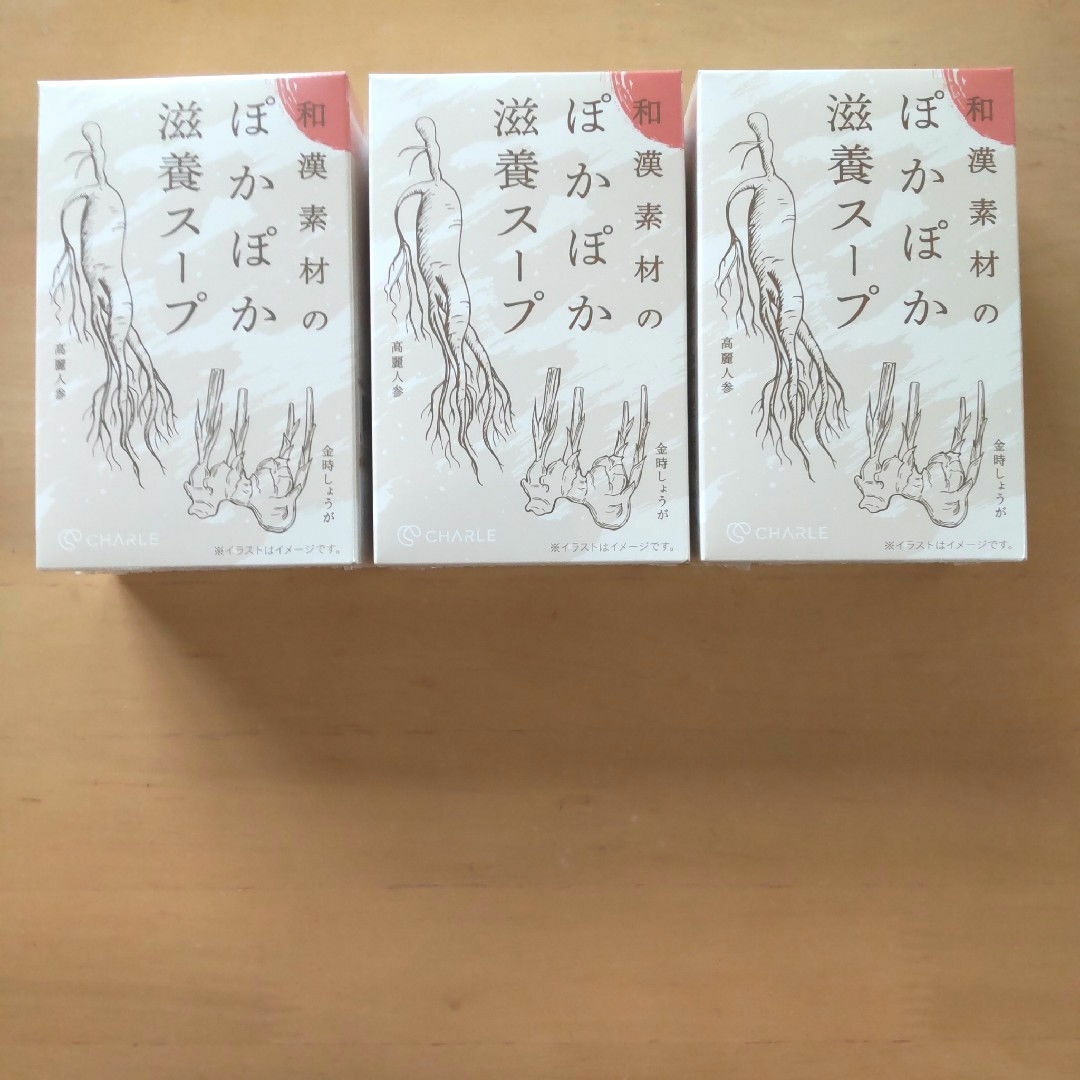 和漢素材の
ぽかぽか
滋養スープ
高麗人参
金時しょうが
CHARLE
※イラストはイメージです。
和漢素材の
ぽかぽか
滋養スープ
高麗人参
金時しょうが
CHARLE
※イラストはイメージです。
和漢素材の
ぽかぽか
滋養スープ
高麗人参
金時しょうが
CHARLE
※イラストはイメージです。